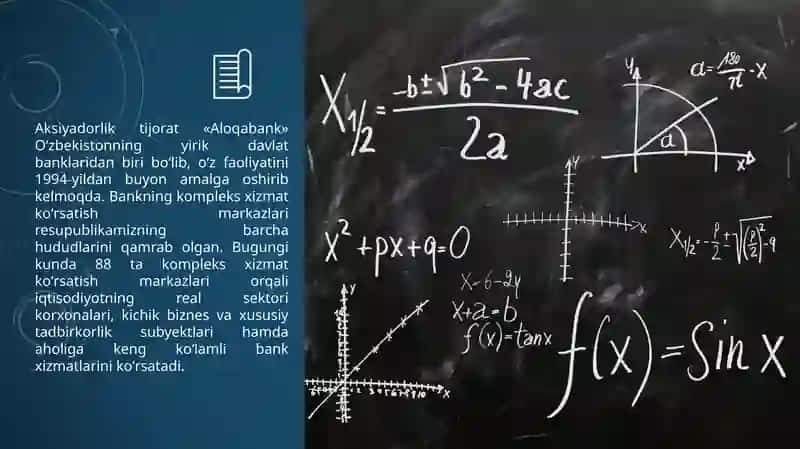 Aksiyadorlik tijorat «Aloqabank»
O‘zbekistonning yirik davlat
banklaridan biri bo‘lib, o‘z faoliyatini
1994-yildan buyon amalga oshirib
kelmoqda. Bankning kompleks xizmat
ko‘rsatish markazlari
resupublikamizning barcha
hududlarini qamrab olgan. Bugungi
kunda 88 ta kompleks xizmat
ko‘rsatish markazlari orqali
iqtisodiyotning real sektori
korxonalari, kichik biznes va xususiy
tadbirkorlik subyektlari hamda
aholiga keng ko‘lamli bank
xizmatlarini ko‘rsatadi.
X1/2 = -b±√b² - 4ac / 2a
y a = 180/π · x
a
x
y
x
x² + px + q = 0
X1/2 = -p/2 ± √(p/2)² - q
x = 6 - 2y
x + a = b
f(x) = tanx
f(x) = Sin x
y
x